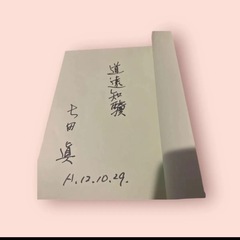 道遠知驥
七田 眞
H.12.10.29.